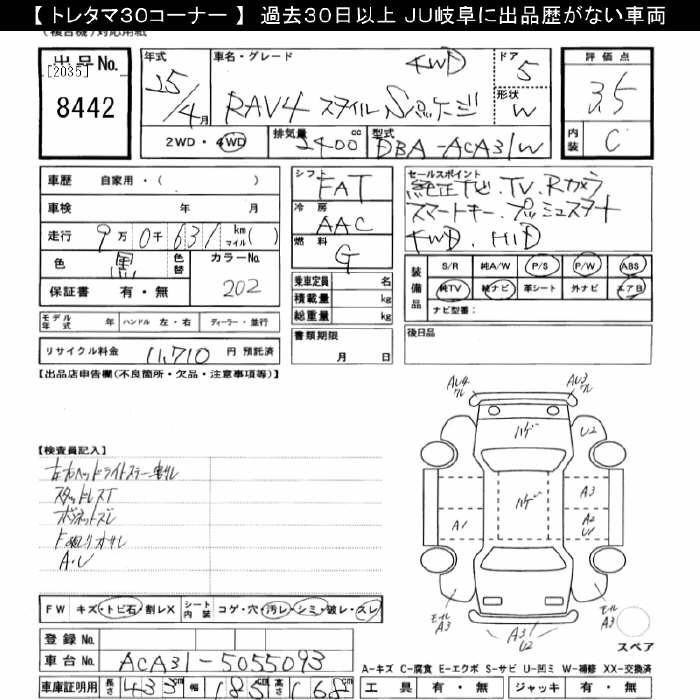 【トレタマ30コーナー】 過去30日以上 JU岐阜に出品歴がない車両
(複合機)対応用紙
出品No. [2035] 8442
年式 15/4月
車名・グレード RAV4 スタイルSパッケージ 4WD
ドア 5
形状 W
評価点 3.5
内装 C
2WD・4WD 排気量 2400cc 型式 DBA-ACA31W
車歴 自家用・( )
車検 年 月
走行 9万0千631 km マイル( )
色 黒 色替 カラーNo. 202
保証書 有・無
シフト FAT
冷房 AAC
燃料 G
乗車定員 名
積載量 kg
総重量 kg
書類期限 月 日
セールスポイント
純正ナビ.TV.Rカメラ
スマートキー.プッシュスタート
4WD.HID
装備品 S/R 純A/W P/S P/W ABS
純TV 純ナビ 革シート 外ナビ エアB
ナビ型番:
後日品
モデル年式 年 ハンドル 左・右 ディーラー・並行
リサイクル料金 11,710 円 預託済
【出品店申告欄(不良箇所・欠品・注意事項等)】
【検査員記入】
左右ヘッドライトステー割レ
スタッドレスT
ボンネットズレ
A・U
AU4 ワレ
AU3 ワレ
ハゲ
U2
ハゲ
A3
A1
A2 U1
モール A3
モール A3
A3 U
スペア
FW キズ・トビ石 割レX シート内装 コゲ・穴・汚レ・シミ・破レ・スレ
登録No.
車台No. ACA31-5055093
A-キズ C-腐食 E-エクボ S-サビ U-凹ミ W-補修 XX-交換済
車庫証明用 長さ 433 幅 185 高さ 168 cm
工具 有・無 ジャッキ 有・無